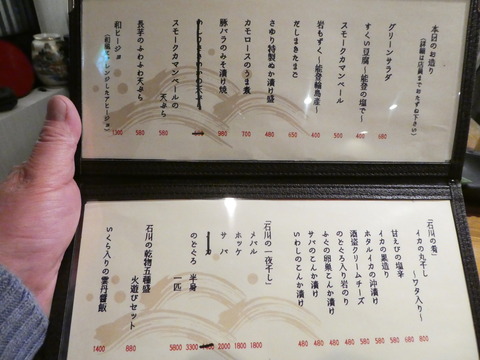 本日のお造り
(詳細は店員までおたずね下さい)
グリーンサラダ 680
すくい豆腐～能登の塩で～ 480
スモークカマンベール 400
岩もずく～能登輪島産～ 450
だしまきたまご 650
さゆり特製ぬか漬け盛 480
カモロースのうま煮 700
豚バラのみそ漬け焼 980
スモークカマンベールの天ぷら 580
長芋のふわふわ天ぷら 580
和ヒージョ
(和風でアレンジしたアヒージョ) 1300
「石川の肴」
イカの丸干し～ワタ入り～ 800
甘えびの塩辛 680
イカの黒造り 580
ホタルイカの沖漬け 580
酒盗クリームチーズ 580
のとぐろ入り岩のり 480
ふぐの卵巣こんか漬け 480
サバのこんか漬け 480
いわしのこんか漬け 480
「石川の一夜干し」
メバル 1800
ホッケ 1800
サバ 2000
のどぐろ 半身 3300
一匹 5800
石川の乾物五種盛
火遊びセット 880
いくら入りの雲丹醤飯 1400